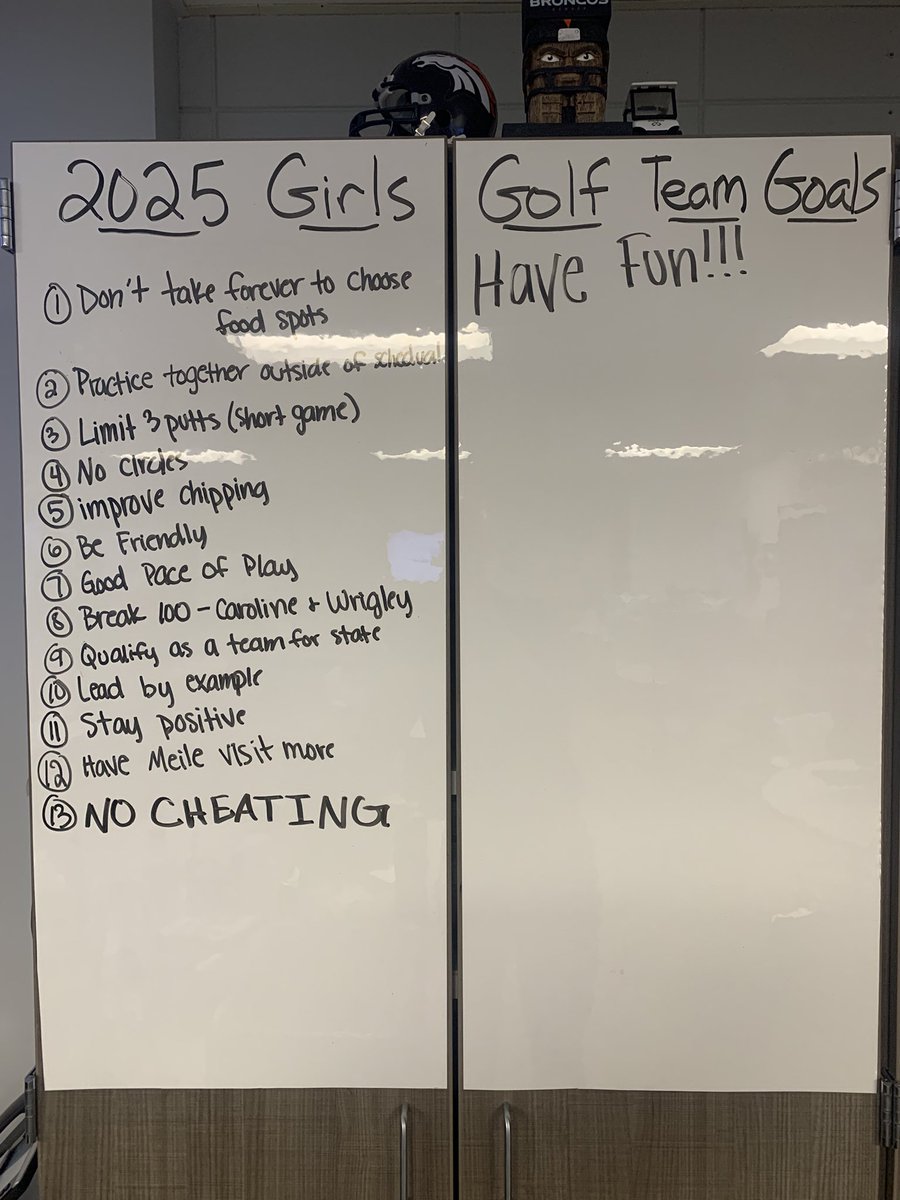 BRONCOS
2025 Girls Golf Team Goals
① Don't take forever to choose
food spots
② Practice together outside of schedual
③ Limit 3 putts (short game)
④ No Circles
⑤ improve chipping
⑥ Be Friendly
⑦ Good Pace of Play
⑧ Break 100 - Caroline + Wrigley
⑨ Qualify as a team for state
⑩ Lead by example
⑪ Stay positive
⑫ Have Meile visit more
⑬ NO CHEATING
Have Fun!!!